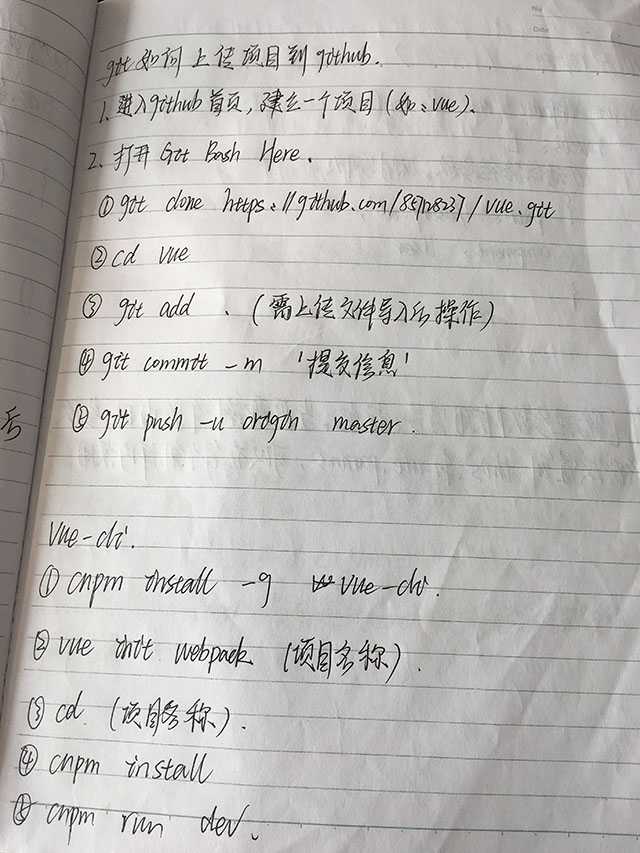 git 如何上传项目到github.
1. 进入github首页,建立一个项目(如:vue).
2. 打开 Git Bash Here.
① git clone https://github.com/85728237/vue.git
② cd vue
③ git add . (需上传文件导入后操作)
④ git commit -m '提交信息'
⑤ git push -u origin master.
后
vue-cli.
① cnpm install -g vue-cli.
② vue init webpack (项目名称).
③ cd (项目名称).
④ cnpm install
⑤ cnpm run dev.